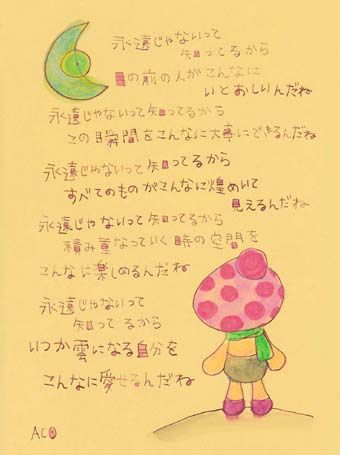 永遠じゃないって
知ってるから
目の前の人がこんなに
いとおしいんだね
永遠じゃないって知ってるから
この瞬間をこんなに大事にできるんだね
永遠じゃないって知ってるから
すべてのものがこんなに煌めいて
見えるんだね
永遠じゃないって知ってるから
積み重なっていく時の空間を
こんなに楽しめるんだね
永遠じゃないって
知ってるから
いつか雲になる自分を
こんなに愛せるんだね
ACO